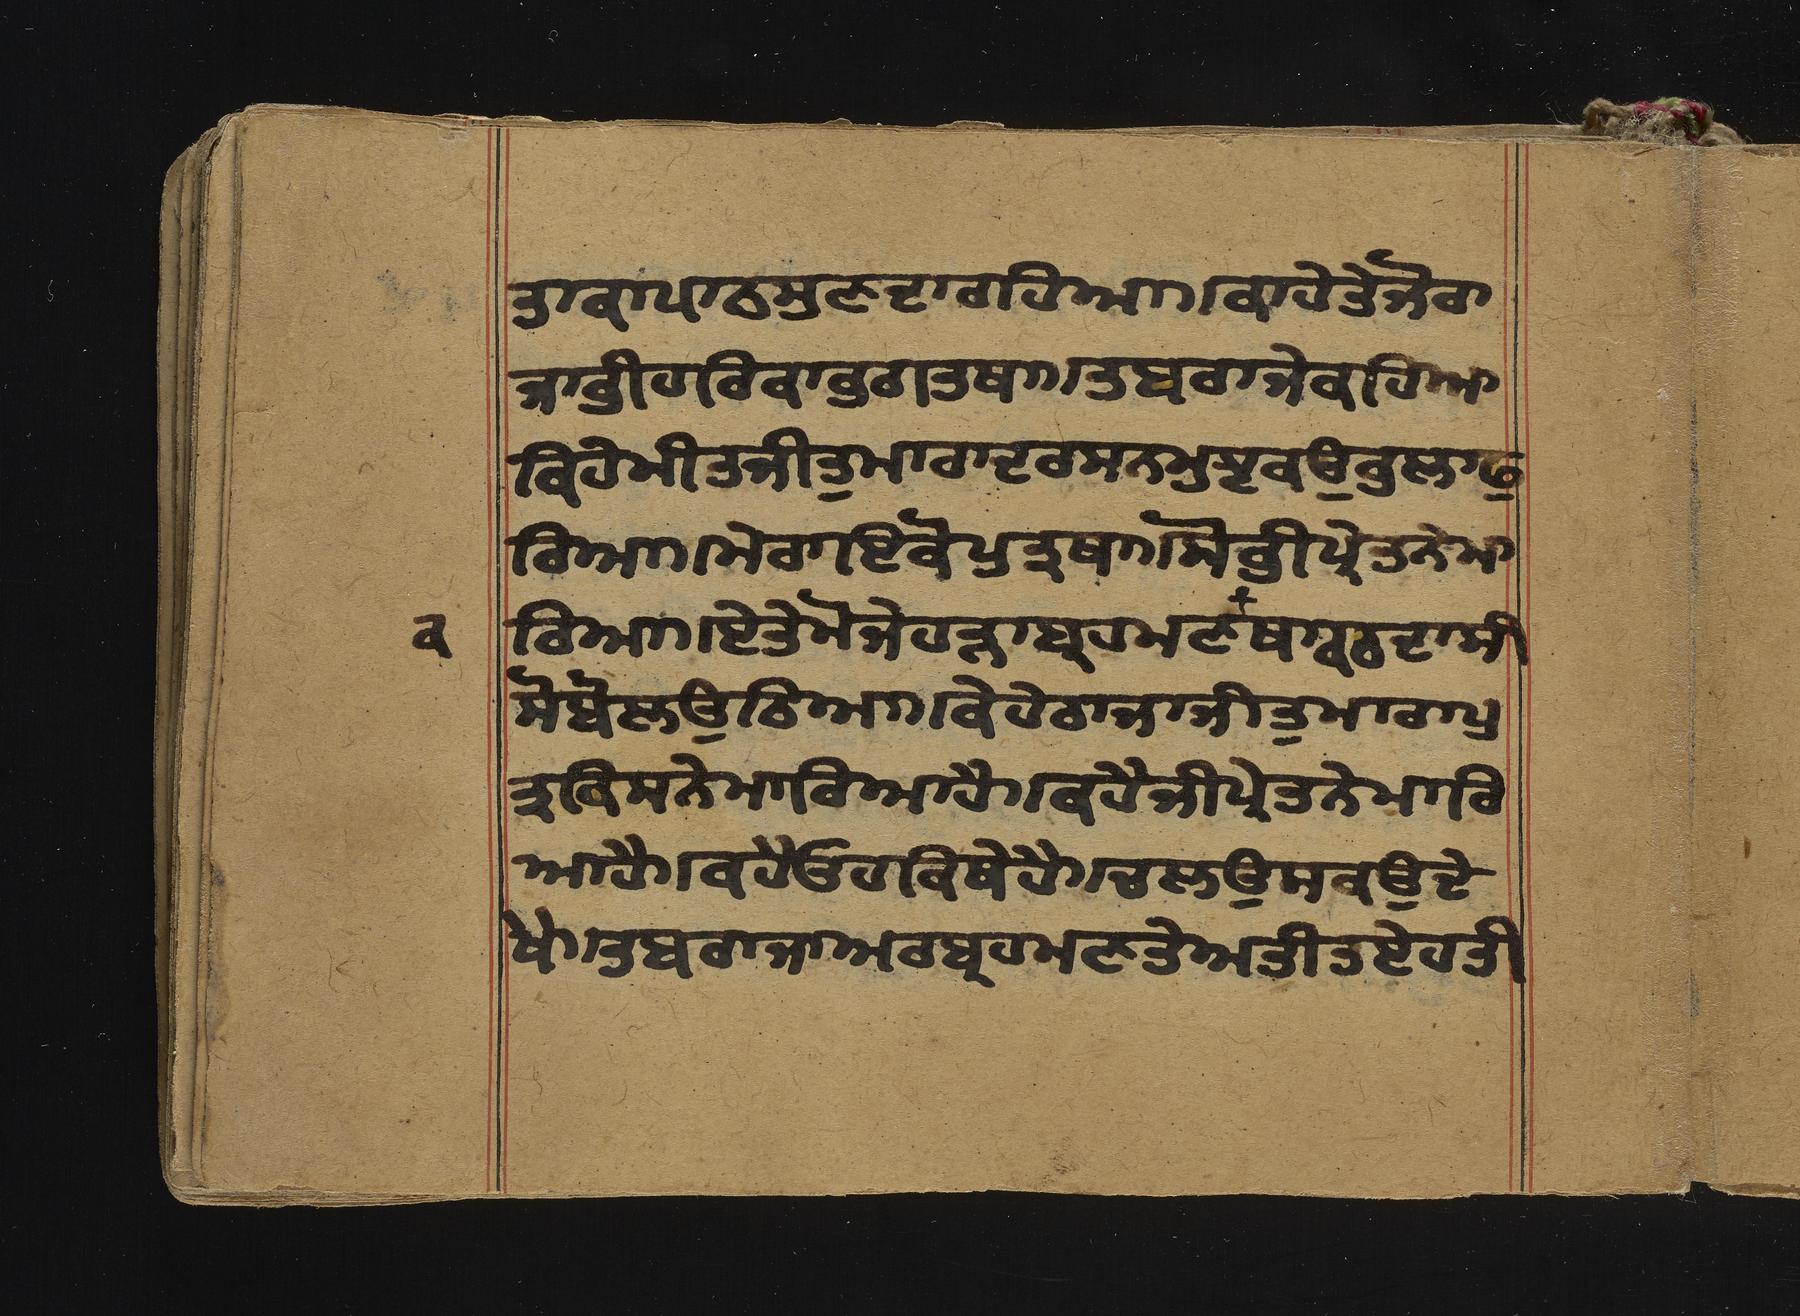 ਤਾਕਾਪਾਠਸੁਣਦਾਰਹਿਆ॥ਕਾਹੇਤੇਜੋਰਾ
ਜਾਭੀਹਰਿਕਾਭਗਤਥਾ॥ਤਬਰਾਜੇਕਹਿਆ
ਕਿਹੇਮੀਤਜੀਤੁਮਾਰਾਦਰਸਨਮੁਝਕਉਭੁਲਾਇ
ਰਿਆ॥ਮੇਰਾਇਕੋਪੁਤ੍ਰਥਾ॥ਸੋਭੀਪ੍ਰੇਤਨੇਮਾ
ਕ
ਰਿਆ॥ਏਤੇਮੋਜੇਹੜਾਬ੍ਰਹਮਣਥਾਪਾਠਦਾਸੀ
ਸੋਬੋਲਉਠਿਆ॥ਕੇਹੇਰਾਜਾਜੀਤੁਮਾਰਾਪੁ
ਤ੍ਰਕਿਸਨੇਮਾਰਿਆਹੈ॥ਕਹੈਜੀਪ੍ਰੇਤਨੇਮਾਰਿ
ਆਹੈ॥ਕਹੈਓਹਕਿਥੇਹੈ॥ਚਲਉਸਕਉਦੇ
ਖੈ॥ਤਬਰਾਜਾਅਰਬ੍ਰਹਮਣਤੇਅਤੀਤਏਹਤੀ